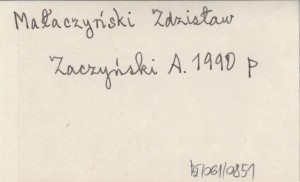 Małaczyński Zdzisław
Zaczyński A. 1990 p
15/061/0851